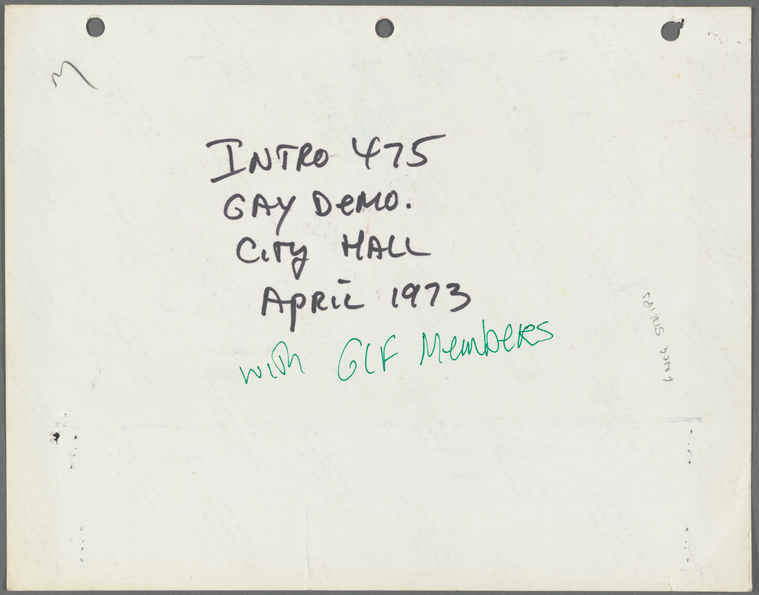 INTRO 475
GAY DEMO.
CITY HALL
APRIL 1973
with GLF Members